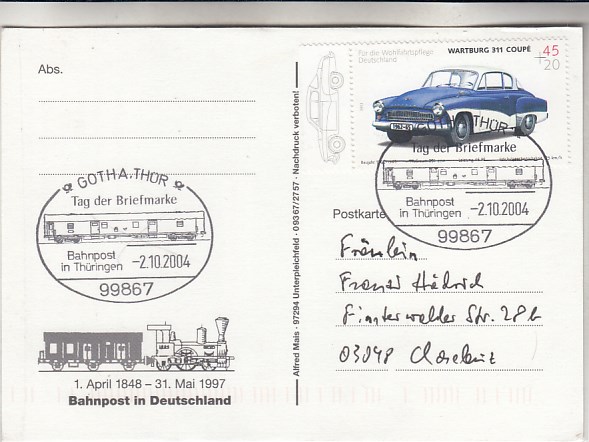 Abs.
GOTHA, THÜR
Tag der Briefmarke
Bahnpost
in Thüringen
-2.10.2004
99867
1. April 1848 – 31. Mai 1997
Bahnpost in Deutschland
Alfred Mais · 97294 Unterpleichfeld · 09367/2757 · Nachdruck verboten!
Für die Wohlfahrtspflege
Deutschland
WARTBURG 311 COUPÉ
45
+20
GOTHA, THÜR
Tag der Briefmarke
Bahnpost
in Thüringen
-2.10.2004
99867
Postkarte
Fräulein
Finsterwalder Str. 28b
03048